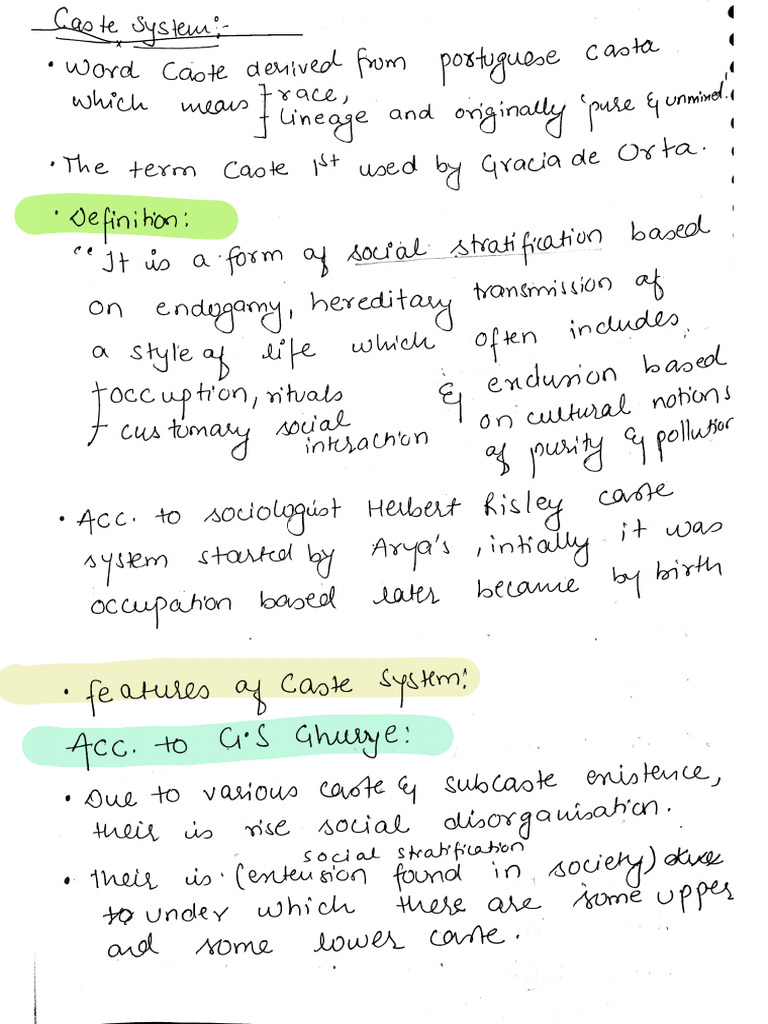 Caste System:-
• Word Caste derived from portuguese casta
which means race,
lineage and originally 'pure & unmixed'.
• The term Caste 1st used by Gracia de Orta.
• Definition:
"It is a form of social stratification based
on endogamy, hereditary transmission of
a style of life which often includes
occuption, rituals & exclusion based
customary social interaction on cultural notions
of purity & pollution
• Acc. to sociologist Herbert Risley caste
system started by Arya's, intially it was
occupation based later became by birth
• features of Caste System:
Acc. to G.S Ghurye:
• Due to various caste & subcaste existence,
their is rise social disorganisation.
social stratification
• Their is (extension found in society) due
to under which there are some upper
and some lower caste.